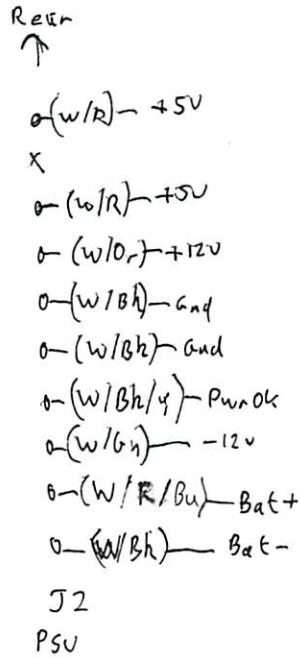 Rear
o-(W/R)- +5V
x
o-(W/R)- +5V
o-(W/Or)- +12V
o-(W/Bk)- Gnd
o-(W/Bk)- Gnd
o-(W/Bk/Y)- Pwr OK
o-(W/Gn)- -12V
o-(W/R/Bu)- Bat+
o-(W/Bk)- Bat-
J2
PSU